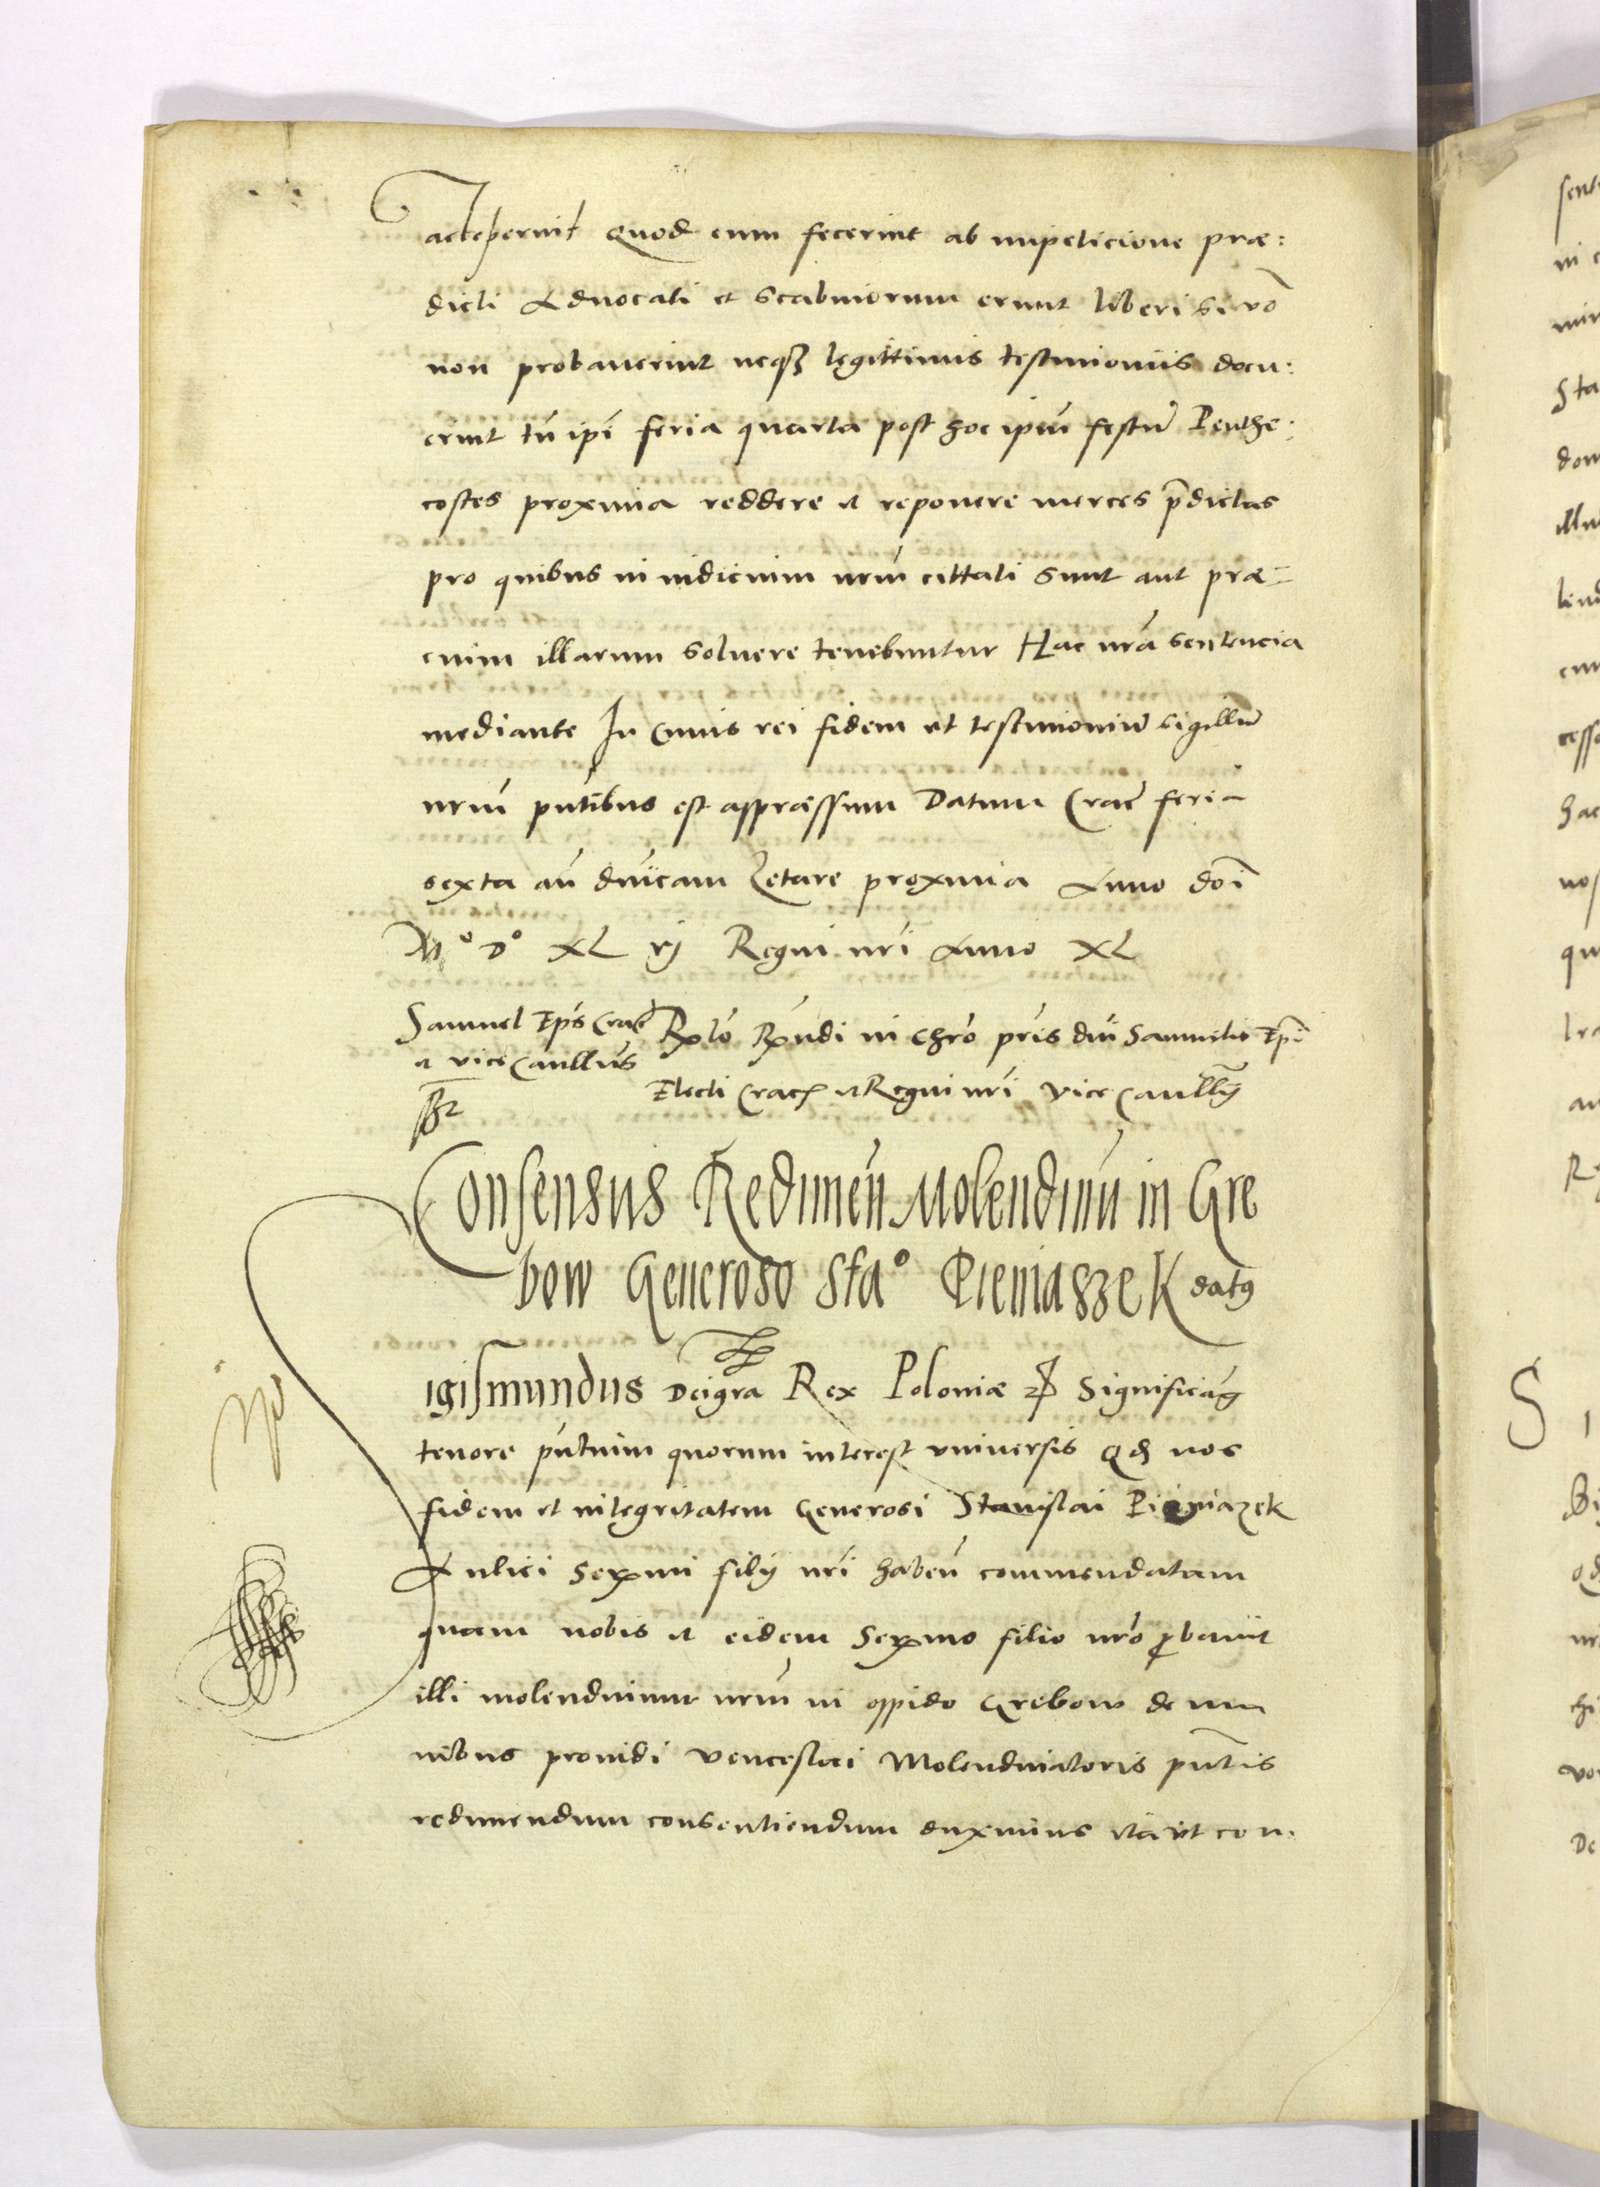 acceperint Quod cum fecerint ab impeticione præ:
dicti Advocati et Scabinorum erunt liberi Si vō
non probaverint neqȝ legittimis testimoniis docu:
erint tū ipī feria quarta post hoc ipūm festū Penthe:
costes proxima reddere et reponere merces p̄dictas
pro quibus in iudicium nrūm cittati sunt aut præ=
cium illarum soluere tenebuntur Hac nrā sentencia
mediante In Cuius rei fidem et testimoniū sigillū
nrūm pn̄tibus est appræssum Datum Crac̄ feria
sexta an̄ dn̄icam Letare proxima Anno doī
Mº Dº XL vj Regni nrī Anno XL
Samuel Ep̄s Crac̄
et vice Cancll̄us
Rl̄o Rn̄di in Chrō prīs dn̄i Samuelis Ep̄i
Electi Crac̄ et Regni nrī Vice Cancll̄ij
Consensus Redimen̄ Molendinū in Gre
bow Generoso Staº Pieniaszek datꝰ
igismundus Dei gra Rex Poloniæ Significāꝰ
tenore pn̄tium quorum interest vniversis Qd nos
fidem et integritatem Generosi Stanislai Pieniazek
Aulici Serx̄mi filij nrī haben̄ commendatam
quam nobis et eidem Serx̄mo filio nrō ꝓbavit
illi molendinum nrūm in oppido Grebow de ma
nibus providi Venceslai Molendinatoris pn̄tis
redimendum consentiendum duximus ita vt con.